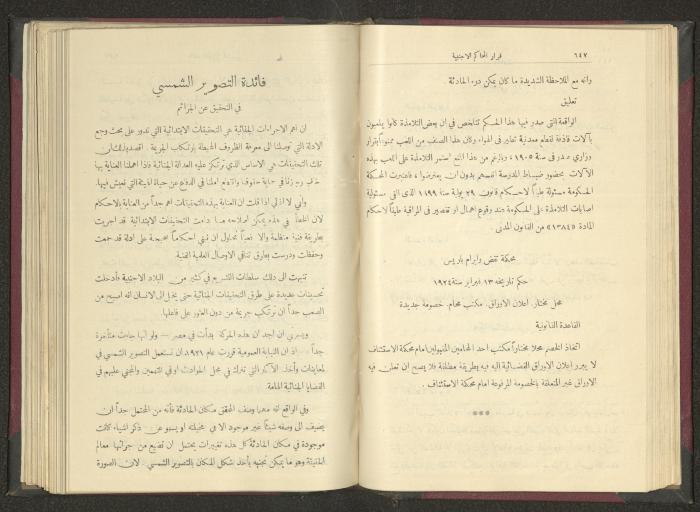 ٦٤٧
قرار المحاكم الاجنبية
وانه مع الملاحظة الشديدة ما كان يمكن درء الحادثة
تعليق
الواقعة التي صدر فيها هذا الحكم تتلخص في ان بعض التلامذة كانوا يلعبون
بآلات قاذفة لقطع معدنية تطير في الهواء وكان هذا الصنف من اللعب ممنوعاً بقرار
وزاري صدر في سنة ١٩٠٥ وبالرغم من هذا المنع استمر التلامذة على اللعب بهذه
الآلات بحضور ضباط المدرسة انفسهم بدون ان يعترضوا، فاعتبرت المحكمة
الحكومة مسئولة طبقاً لاحكام قانون ٢٩ يولية سنة ١٨٩٩ الذي التي مسئولية
اصابات التلامذة على الحكومة عند وقوع اهمال او تقصير في المراقبة طبقاً لاحكام
المادة «١٣٨٤» من القانون المدني
محكمة نقض وابرام باريس
حكم تاريخه ١٣ فبراير سنة ١٩٢٤
محل مختار. اعلان الاوراق. مكتب محام. خصومة جديدة
القاعدة القانونية
اتخاذ الخصم محلا مختاراً مكتب احد المحامين المقبولين امام محكمة الاستئناف
لا يبرر اعلان الاوراق القضائية اليه فيه بطريقة مطلقة فلا يصح ان تعلن فيه
الاوراق غير المتعلقة بالخصومة المرفوعة امام محكمة الاستئناف.
***
فائدة التصوير الشمسي
في التحقيق عن الجرائم
ان اهم الاجراءات الجنائية هي التحقيقات الابتدائية التي تدور على بحث وجمع
الادلة التي توصلنا الى معرفة الظروف المحيطة بارتكاب الجريمة. اقصد بذلك ان
تلك التحقيقات هي الاساس الذي ترتكز عليه العدالة الجنائية فاذا اهملنا العناية بها
في حماية حقوقنا وانقطع املنا في الدفاع عن حياة الهيئة التي نعيش فيها.
واني لا ازال اذا قلت ان العناية بهذه التحقيقات اهم جداً من العناية بالاحكام
لان الخطأ في هذه يمكن اصلاحه ما دامت التحقيقات الابتدائية قد اجريت
بطريقة فنية منظمة والا فعبثاً نحاول ان نبني احكاماً صحيحة على ادلة قد جمعت
وحفظت ودرست بطرق تنافي الاصول العلمية الفنية.
تنبهت الى ذلك سلطات التشريع في كثير من البلاد الاجنبية فأدخلت
تحسينات عديدة على طرق التحقيقات الجنائية حتى يخيل الى الانسان انه اصبح من
الصعب جداً ان ترتكب جريمة من دون العثور على فاعلها.
ويسرني ان اجد ان هذه الحركة بدأت في مصر — ولو انها جاءت متأخرة
جداً — اذ ان النيابة العمومية قررت عام ١٩٢١ ان تستعمل التصوير الشمسي في
المعاينات وأخذ الآثار التي تترك في محل الحوادث او في المتهمين والمجني عليهم في
القضايا الجنائية الهامة
وفي الواقع انه مهما وصف المحقق مكان الحادثة فأنه من المحتمل جداً ان
يضيف الى وصفه شيئاً غير موجود الا في مخيلته او يسهو عن ذكر اشياء كانت
موجودة في مكان الحادثة كل هذه تغييرات يحتمل ان تضيع من جرائها معالم
الحقيقة وهو ما يمكن تجنبه بأخذ شكل المكان بالتصوير الشمسي. لان الصورة